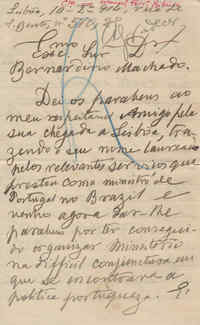 Lisboa, 10
Exmo Snr Dr
Bernardino Machado.
Devo parabens ao
meu respeitavel Amigo pela
sua chegada a Lisboa, tra-
zendo o seu nome laureado
pelos relevantes serviços que
prestou como ministro de
Portugal no Brazil e
venho agora dar-lhe
parabens por ter consegui-
do organizar Ministerio
na difficil conjunctura em
que se encontrava a
politica portugueza. E,